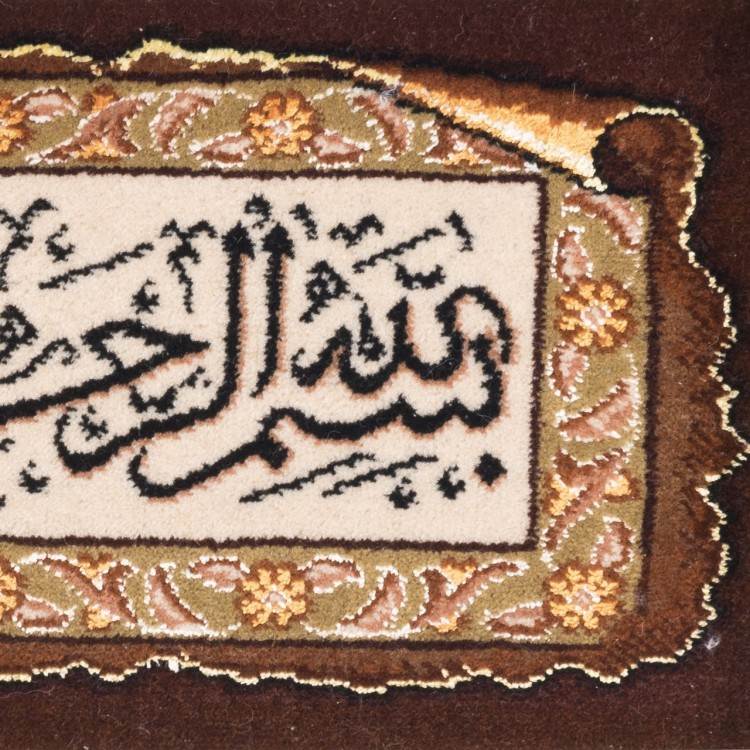 بِسْمِ اللَّهِ الرَّحْ